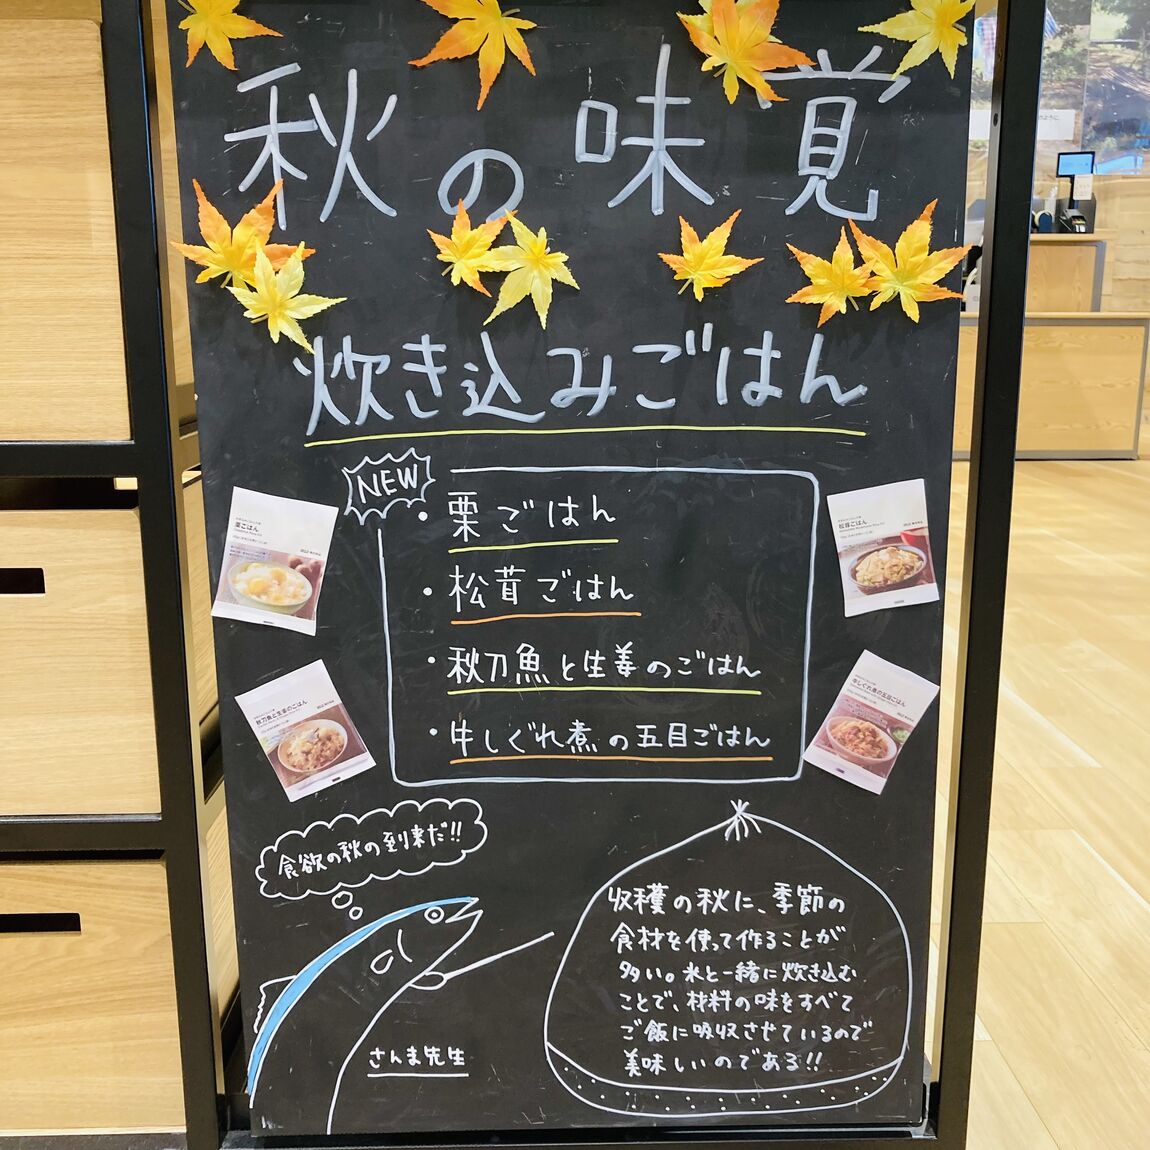 秋の味覚
炊き込みごはん
NEW
・栗ごはん
・松茸ごはん
・秋刀魚と生姜のごはん
・牛しぐれ煮の五目ごはん
栗ごはん
松茸ごはん
秋刀魚と生姜のごはん
牛しぐれ煮の五目ごはん
食欲の秋の到来だ!!
さんま先生
収穫の秋に、季節の
食材を使って作ることが
多い。米と一緒に炊き込む
ことで、材料の味をすべて
ご飯に吸収させているので
美味しいのである!!